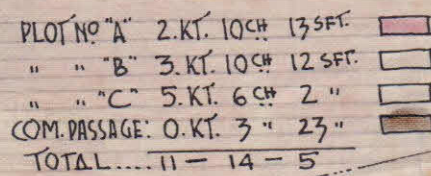 PLOT Nº "A" 2. KT. 10 CH 13 SFT.
" " "B" 3. KT. 10 CH 12 SFT.
" " "C" 5. KT. 6 CH 2 "
COM. PASSAGE: 0. KT. 3 " 23 "
TOTAL..... 11 — 14 — 5